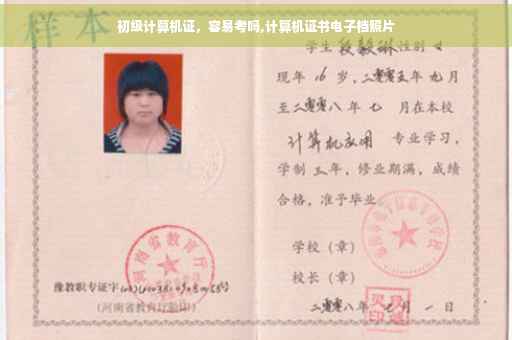 初级计算机证，容易考吗,计算机证书电子档照片
样本
学生段毅琳性别女
现年16岁，二零零五年九月
至二零零八年七月在本校
计算机应用 专业学习，
学制三年，修业期满，成绩
合格，准予毕业
学校（章）
校长（章）
二零零八年 月一日
河南省教育厅
豫教职专证字
（河南省教育厅验印）